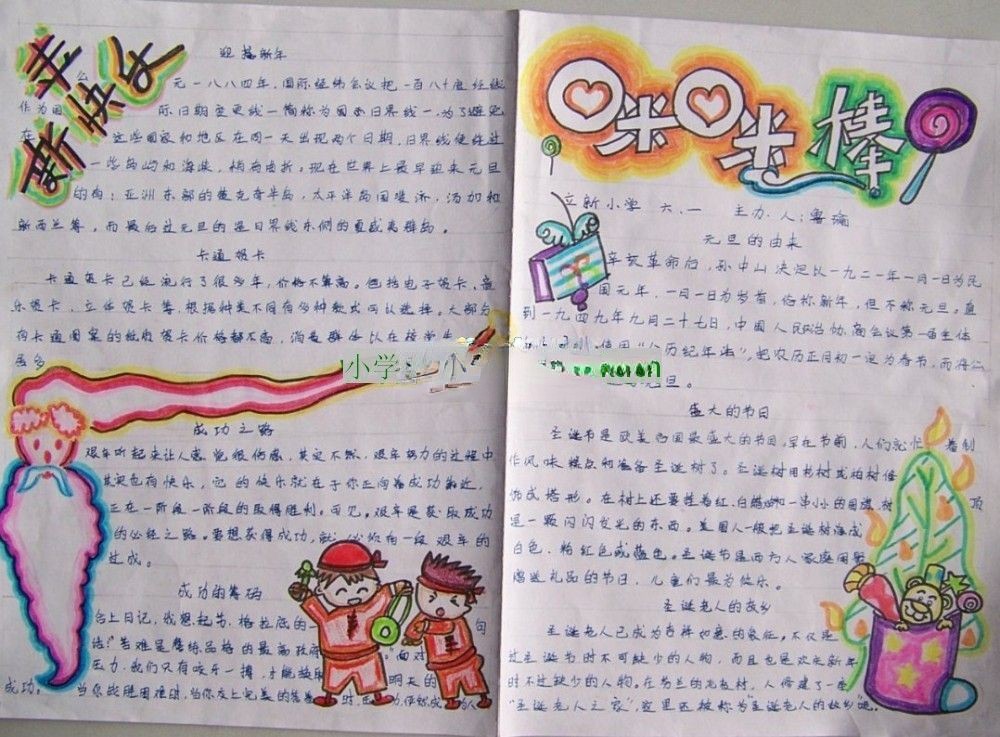 新年快乐
迎接新年
元一八八四年，国际经纬会议把一百八十度经线
作为国际日期变更线一简称为国际日界线一，为了避免
在这些国家和地区在同一天出现两个日期，日界线使经过
一些岛屿和海峡，稍有曲折。现在世界上最早迎来元旦
的有：亚洲东部的楚克奇半岛，太平洋岛国斐济，汤加和
新西兰等，而最后过元旦的是日界线东侧的夏威夷群岛。
卡通贺卡
卡通贺卡已经流行了很多年，价格不算高。包括电子贺卡、音
乐贺卡、立体贺卡等，根据种类不同有多种款式可以选择。大部分
的卡通图案的纸质贺卡价格都不高，消费群体以在校学生
居多
小学 小
成功之路
艰辛听起来让人感觉很伤感，其实不然，艰辛努力的过程中
其实也有快乐，它的快乐就在于你正向着成功靠近，
正在一阶段一阶段的取得胜利。可见，艰辛是获取成功
的必经之路。要想获得成功，就必须有一段艰辛的
过成。
成功的筹码
台上日记，我想起苏格拉底的一句
话："苦难是磨练品格的最高政府" 面对
压力，我们只有咬牙一搏，才能放 明天的
成功。当你战胜困难时，当你度上完美的答卷时，
哆咪哆咪棒
立新小学 六.一 主办人：鲁瑜
元旦的由来
辛亥革命后，孙中山决定以一九二一年一月一日为民
国元年，一月一日为岁首，俗称新年，但不称元旦。直
到一九四九年九月二十七日，中国人民政治协商会议第一届全体
使用"公历纪年法"，把农历正月初一定为春节，而将公
元旦。
盛大的节日
圣诞节是欧美各国最盛大的节日，早在节前，人们就忙着制
作风味糕点和准备圣诞树了。圣诞树用杉树或柏树修
饰成塔形。在树上还要挂着红、白蜡烛和一串小的国旗，树顶
是一颗闪闪发光的东西。美国人一般把圣诞树漆成
白色、粉红色或蓝色。圣诞节是西方人家庭团聚
赠送礼品的节日，儿童们最为快乐。
圣诞老人的故乡
圣诞老人已成为吉祥如意的象征，不仅是
过圣诞节时不可缺少的人物，而且也是欢庆新年
时不过缺少的人物。在芬兰的 村，人修建了一座
"圣诞老人之家"，这里还被称为圣诞老人的故乡呢。